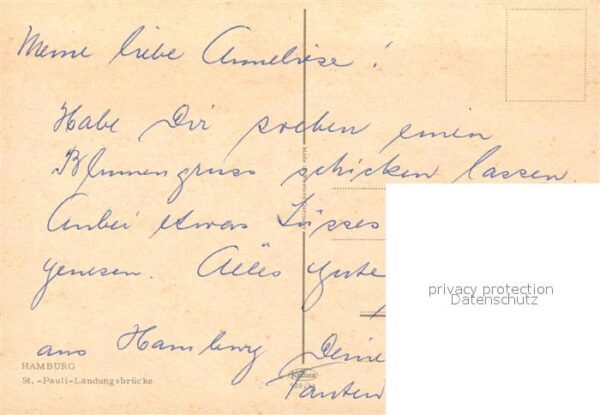 Meine liebe Anneliese!
Habe Dir soeben einen
Blumengruss schicken lassen.
Anbei etwas Süsses
genesen. Alles Gute
aus Hamburg Deine
Tanten
HAMBURG
St. -Pauli-Landungsbrücke
privacy protection
Datenschutz